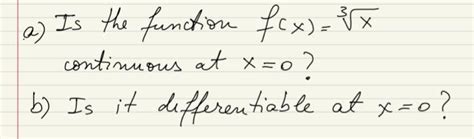 a) Is the function f(x) = ∛x
continuous at x=0?
b) Is it differentiable at x=0?